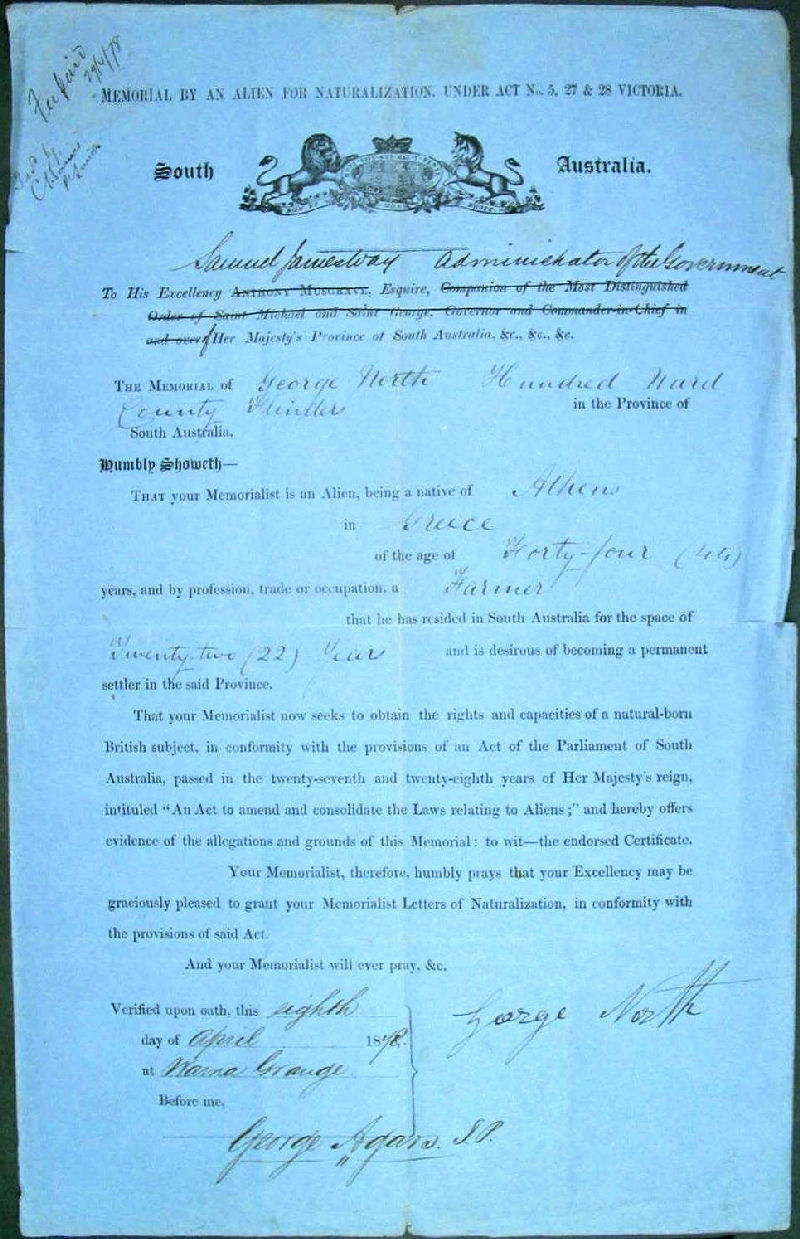 Fee paid
29/4/78
MEMORIAL BY AN ALIEN FOR NATURALIZATION, UNDER ACT No. 5, 27 & 28 VICTORIA.
South Australia.
Samuel James Way Administrator of the Government
To His Excellency ANTHONY MUSGRAVE, Esquire, Companion of the Most Distinguished
Order of Saint Michael and Saint George, Governor and Commander-in-Chief in
and over of Her Majesty's Province of South Australia, &c., &c., &c.
THE MEMORIAL OF George North Hundred Ward
County Flinders in the Province of
South Australia,
Humbly Showeth—
THAT your Memorialist is an Alien, being a native of Athens
in Greece
of the age of Forty-four (44)
years, and by profession, trade or occupation, a Farmer
that he has resided in South Australia for the space of
Twenty-two (22) Years and is desirous of becoming a permanent
settler in the said Province.
That your Memorialist now seeks to obtain the rights and capacities of a natural-born
British subject, in conformity with the provisions of an Act of the Parliament of South
Australia, passed in the twenty-seventh and twenty-eighth years of Her Majesty's reign,
intituled “An Act to amend and consolidate the Laws relating to Aliens;” and hereby offers
evidence of the allegations and grounds of this Memorial: to wit—the endorsed Certificate.
Your Memorialist, therefore, humbly prays that your Excellency may be
graciously pleased to grant your Memorialist Letters of Naturalization, in conformity with
the provisions of said Act.
And your Memorialist will ever pray, &c.
Verified upon oath, this eighth
day of April 1878.
at Warna Grange
Before me,
George North
George Agars. J.P.